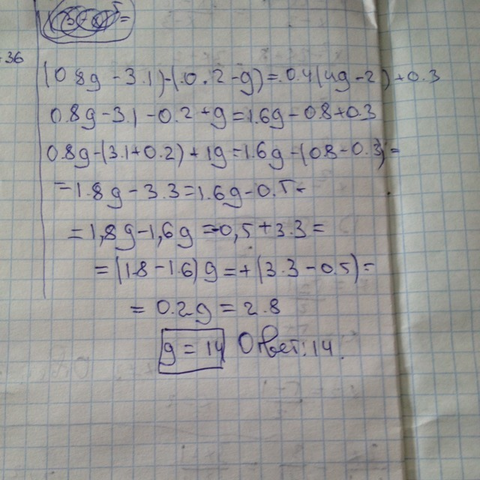 36
(0.8g - 3.1) - (0.2 - g) = 0.4(4g - 2) + 0.3
0.8g - 3.1 - 0.2 + g = 1.6g - 0.8 + 0.3
0.8g - (3.1 + 0.2) + 1g = 1.6g - (0.8 - 0.3) =
= 1.8g - 3.3 = 1.6g - 0.5 =
= 1,8g - 1,6g = -0,5 + 3.3 =
= (1.8 - 1.6)g = + (3.3 - 0.5) =
= 0.2g = 2.8
g = 14 Ответ: 14.